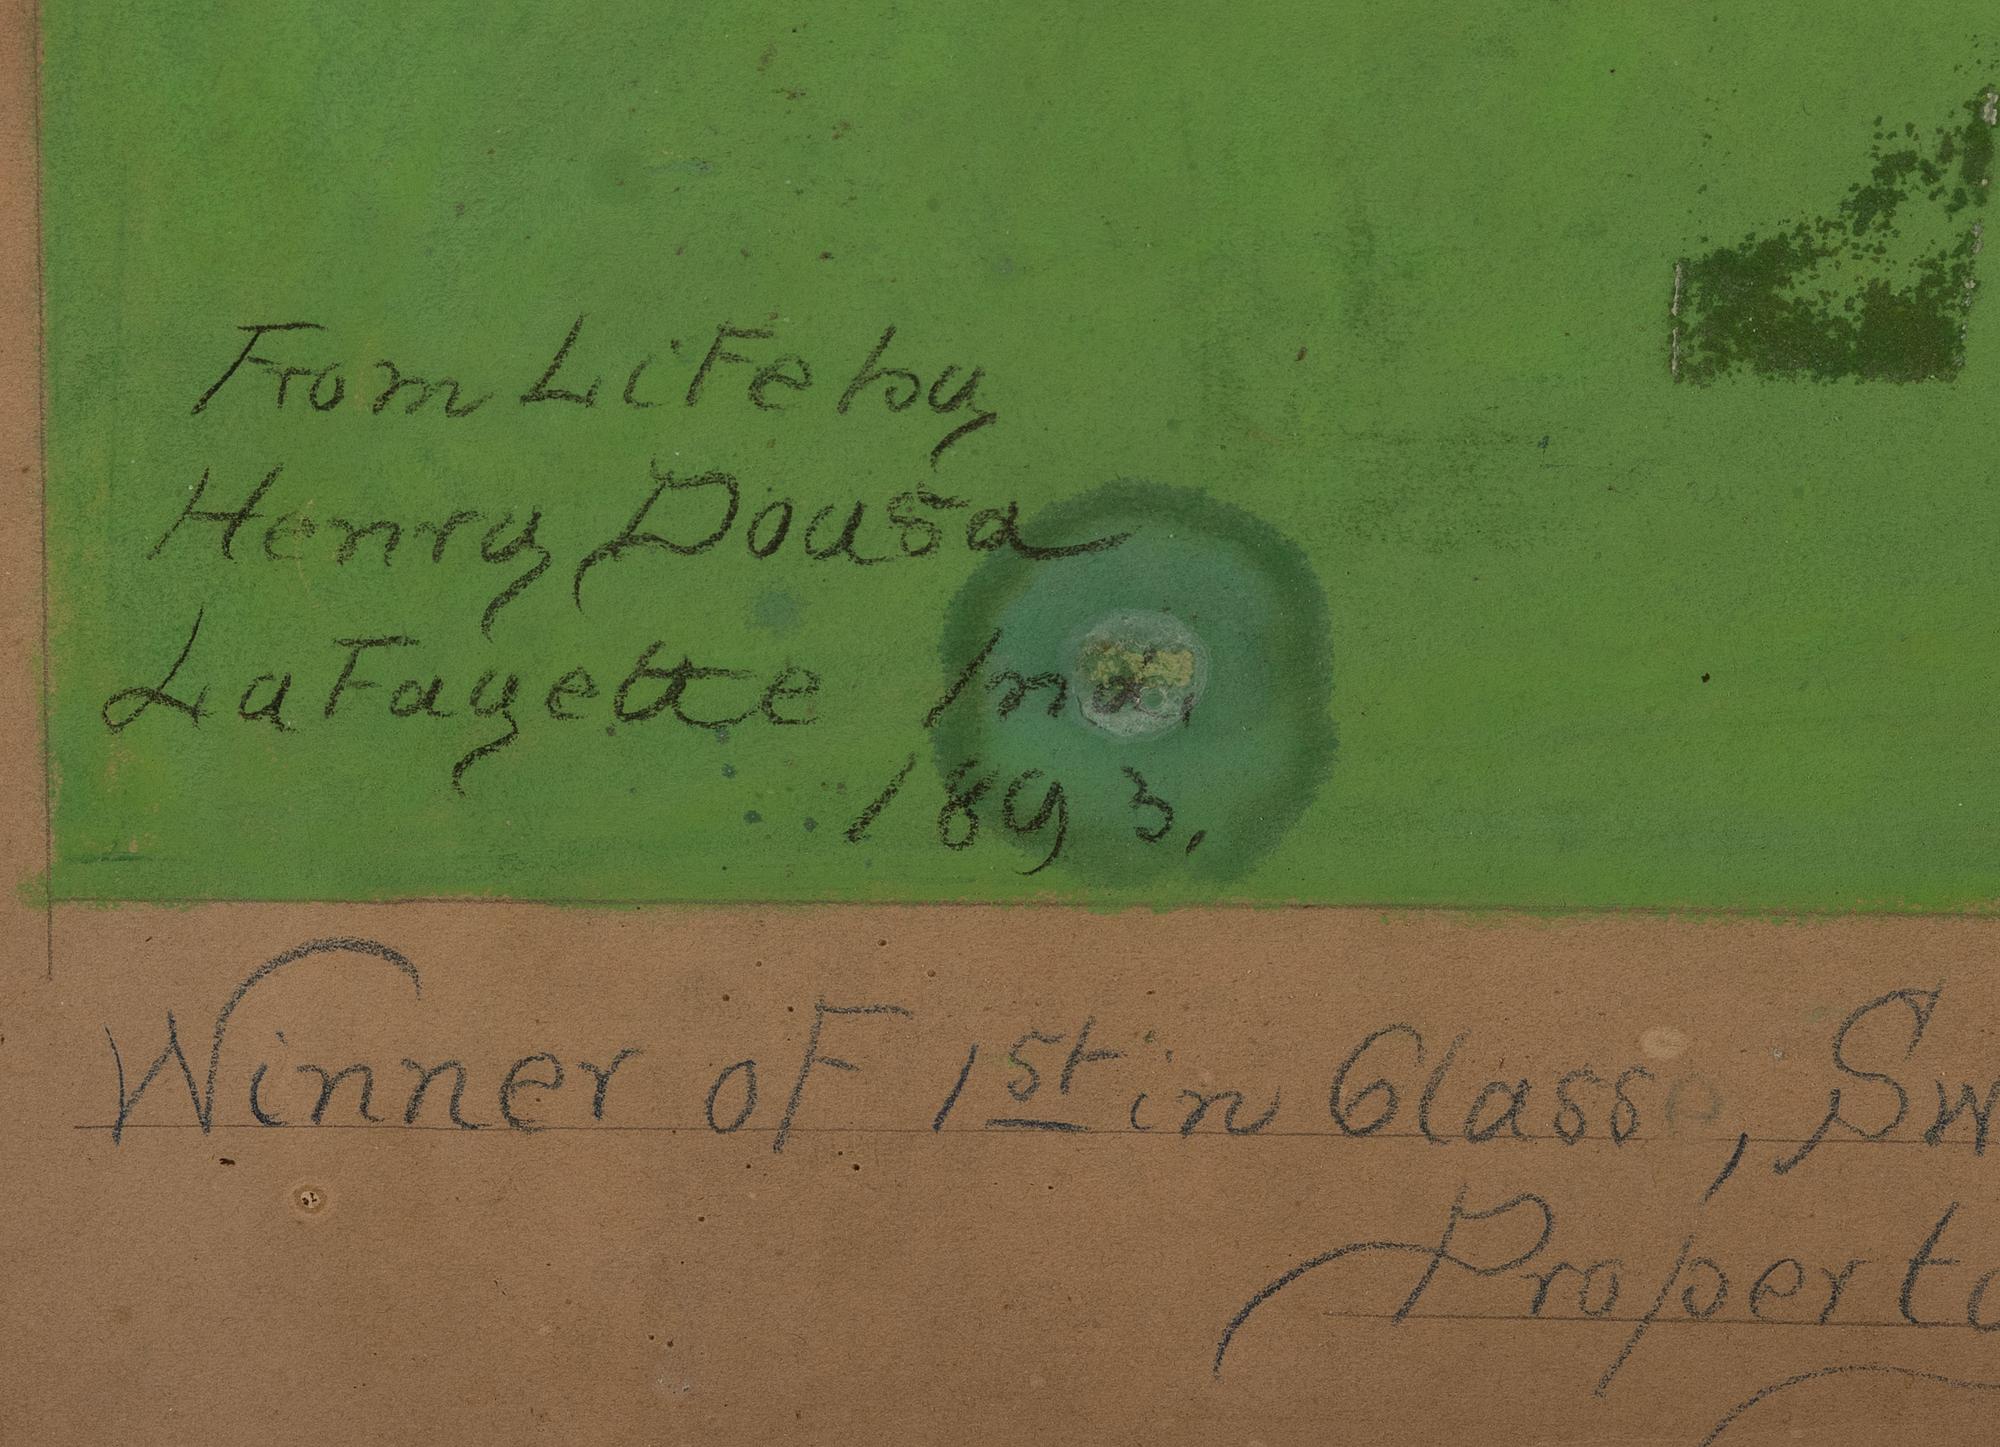 From LiFe by
Henry Dousa
LaFayette Ind.
1893.
Winner oF 1st in Class, Sw
Property